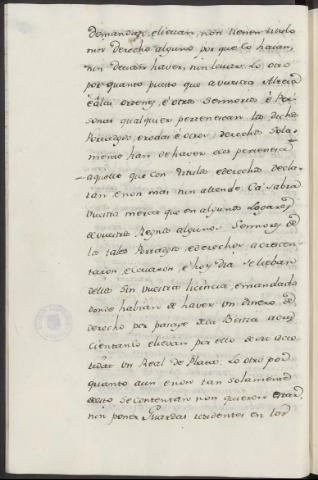 demandas, e llevan, non tienen titulo
nin derecho alguno por que lo hacian,
nin devan haver, nin levar. Lo otro
por quanto puesto que a vuestra Alteza
é á las ordenes, é otros Sennorios é Per-
sonas qualquier pertenescan los dichos
Portazgos, e rodas é otros derechos Sola-
mente han de haver e les pertenescia
aquello que con titulos e derechos decla-
ran e non mas nin allende. Ca sabra
vuestra merced que en algunos Logares
de vuestros Regnos algunos Sennores de
los tales Portazgos, e derechos acrecen-
taron, e levaron, é hoy dia se lieban
dellos sin vuestra licencia, e mandado
donde habian de haver un dinero de
derecho por pasaje de la Bestia acre-
cientanlo e llevan por ello de un
un Real de Plata. Lo otro por
quanto aun e non tan solament
desto se contentan non quieren
nin poner Guardas residentes en los